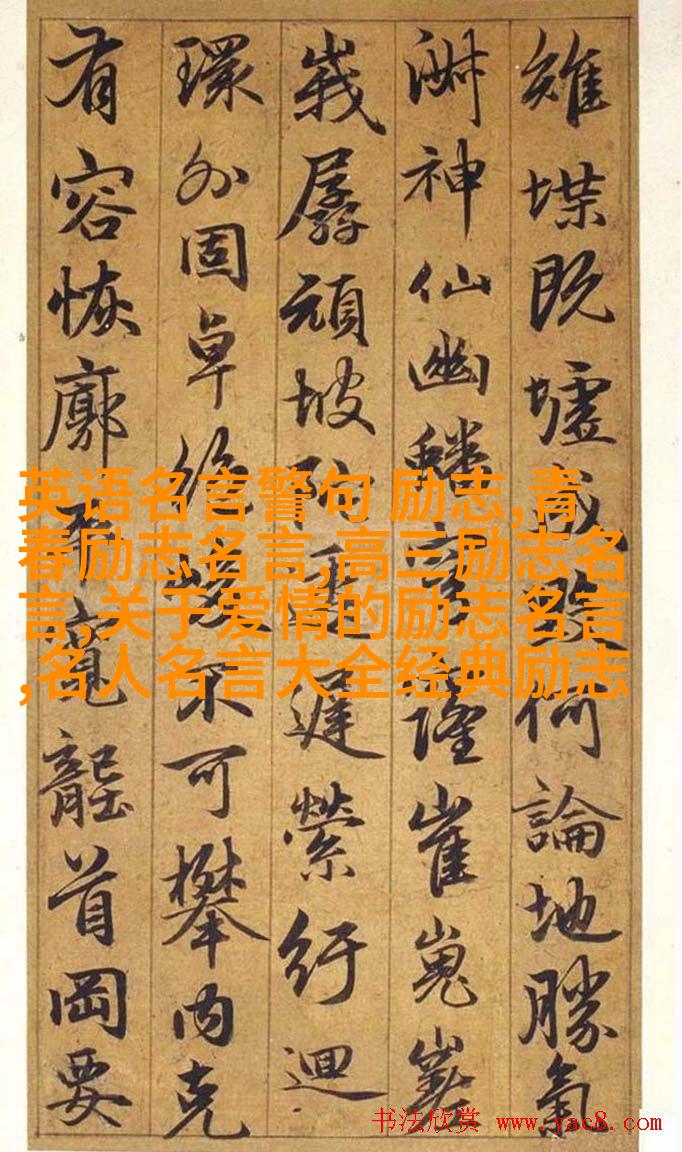 雉堞既墟成何論地勝氣
神仙幽隆崔嵬嵳
峩孱頑坡陁遲縈紆迴
環外固卓不可攀内克
有容恢廓寬首岡要
英语名言警句 励志,青
春励志名言,高三励志名
言,关于爱情的励志名言
,名人名言大全经典励志
书法欣赏 www.yac8.com